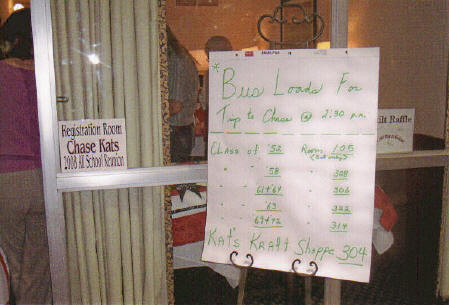 Registration Room
Chase Kats
2008 All School Reunion
* Bus Loads For
Trip to Chase @ 2:30 p.m.
Class of '52 Room 105
" 58 " 308
" 61+64 " 306
" '63 " 322
" 69+72 " 314
Kat's Kraft Shoppe 304
ilt Raffle